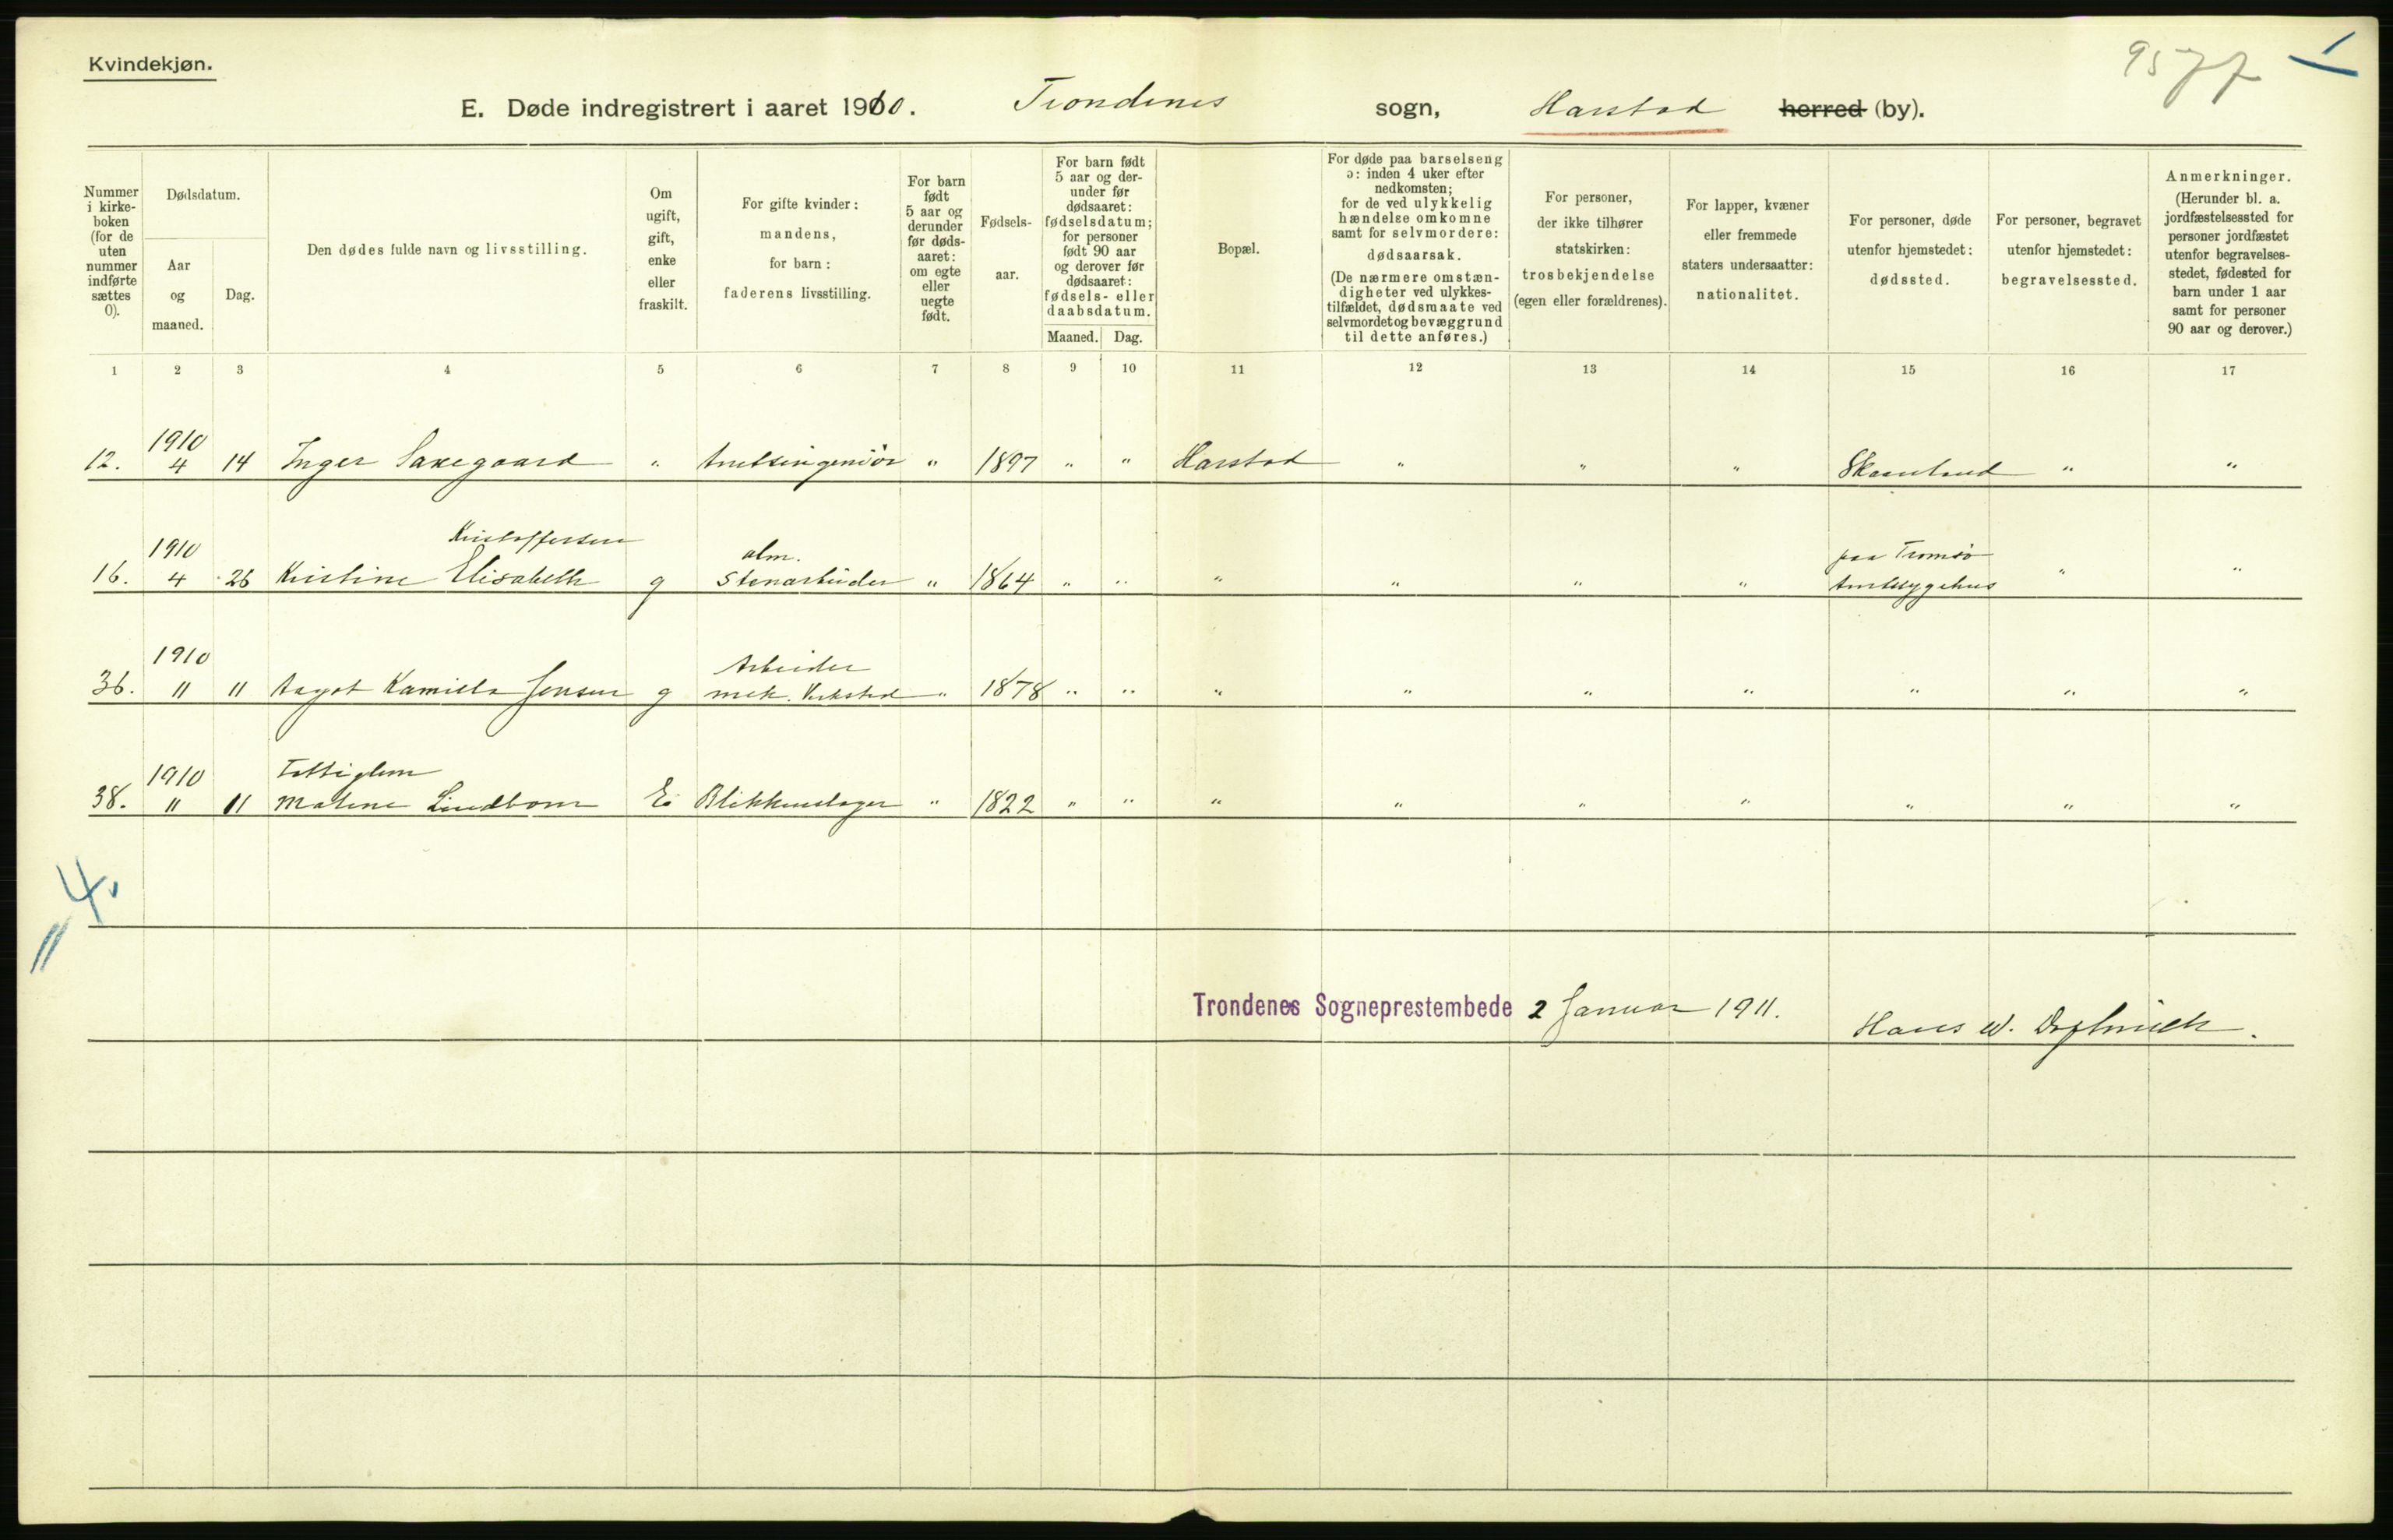 Kvindekjøn.
9577
E. Døde indregistrert i aaret 1910. Trondenes sogn, Harstad herred (by).
Nummer i kirke-boken (for de uten nummer indførte sættes 0).
Dødsdatum.
Aar og maaned.
Dag.
Den dødes fulde navn og livsstilling.
Om ugift, gift, enke eller fraskilt.
For gifte kvinder: mandens, for barn: faderens livsstilling.
For barn født 5 aar og derunder før døds-aaret: om egte eller uegte født.
Fødsels-aar.
For barn født 5 aar og der-under før dødsaaret: fødselsdatum; for personer født 90 aar og derover før dødsaaret: fødsels- eller daabsdatum.
Maaned. Dag.
Bopæl.
For døde paa barselseng ɔ: inden 4 uker efter nedkomsten; for de ved ulykkelig hændelse omkomne samt for selvmordere: dødsaarsak. (De nærmere omstæn-digheter ved ulykkes-tilfældet, dødsmaate ved selvmordet og bevæggrund til dette anføres.)
For personer, der ikke tilhører statskirken: trosbekjendelse (egen eller forældrenes).
For lapper, kvæner eller fremmede staters undersaatter: nationalitet.
For personer, døde utenfor hjemstedet: dødssted.
For personer, begravet utenfor hjemstedet: begravelsessted.
Anmerkninger. (Herunder bl. a. jordfæstelsessted for personer jordfæstet utenfor begravelses-stedet, fødested for barn under 1 aar samt for personer 90 aar og derover.)
1 2 3 4 5 6 7 8 9 10 11 12 13 14 15 16 17
1910
12. 4 14 Inger Saxegaard " Amtsingeniør " 1897 " " Harstad " " " Skaanland " "
1910 Kristoffersen alm. paa Tromsø
16. 4 26 Kristine Elisabeth g Stenarbeider " 1864 " " " " " " Amtssygehus " "
1910 Arbeider
36. 11 11 Aagot Kamilla Jensen g mek. Verksted " 1878 " " " " " " " " "
1910 Fattiglem
38. 11 11 Malene Lindbom E. Blikkenslager " 1822 " " " " " " " " "
4.
Trondenes Sogneprestembede 2 Januar 1911.
Hans W.